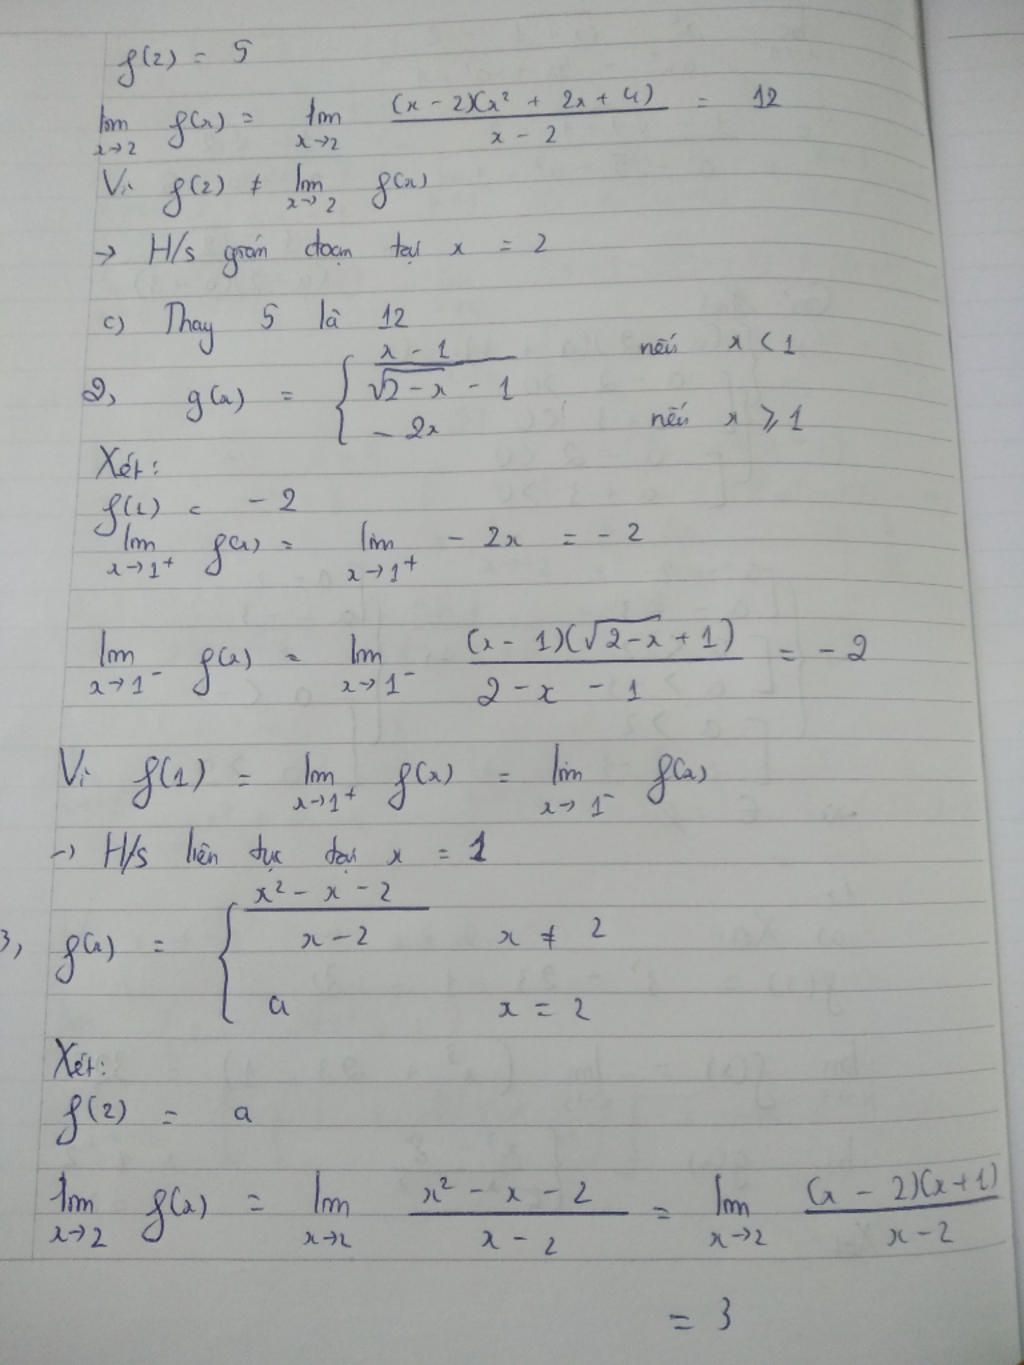 f(2) = 5
lim x→2 f(x) = lim x→2 (x - 2)(x² + 2x + 4) / x - 2 = 12
Vì f(2) ≠ lim x→2 f(x)
→ H/s gián đoạn tại x = 2
c) Thay 5 là 12
2, g(x) = { x - 1 / √2-x - 1 nếu x < 1
- 2x nếu x ⩾ 1
Xét:
f(1) = - 2
lim x→1⁺ f(x) = lim x→1⁺ - 2x = - 2
lim x→1⁻ f(x) = lim x→1⁻ (x - 1)(√2-x + 1) / 2 - x - 1 = - 2
Vì f(1) = lim x→1⁺ f(x) = lim x→1⁻ f(x)
→ H/s liên tục tại x = 1
3, f(x) = { x² - x - 2 / x - 2 x ≠ 2
a x = 2
Xét:
f(2) = a
lim x→2 f(x) = lim x→2 x² - x - 2 / x - 2 = lim x→2 (x - 2)(x+1) / x - 2
= 3